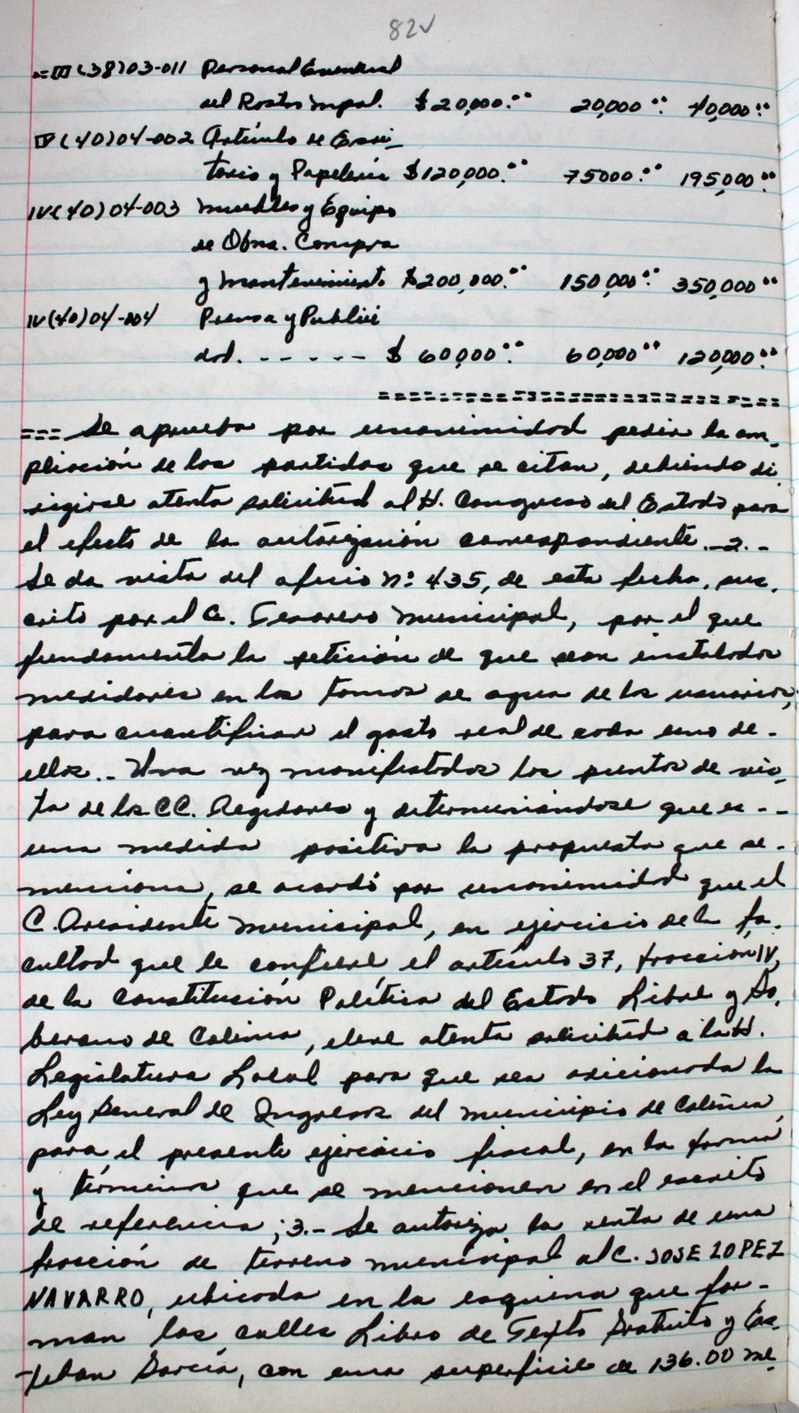 82v
-=III(38)03-011 Personal Eventual
del Rastro Mpal. $20,000.°° 20,000°° 40,000°°
IV(40)04-002 Artículo de Escri_
torio y Papelería $120,000.°° 75000.°° 195,000°°
IV(40)04-003 Muebles y Equipo
de Ofna. Compra
y Mantenimiento $200,000.°° 150,000°° 350,000°°
IV(40)04-004 Prensa y Publici
dad. - - - - - $ 60,000°° 60,000°° 120,000°°
=====================
=== Se aprueba por unanimidad pedir la am-
pliación de las partidas que se citan, debiendo di
rigirse atenta solicitud al H. Congreso del Estado para
el efecto de la autorización correspondiente.-2.-
Se da vista del oficio n° 435, de esta fecha, sus-
crito por el C. Tesorero Municipal, por el que
fundamenta la petición de que sean instalados
medidores en las tomas de agua de los usuarios,
para cuantificar el gasto real de cada uno de-
ellos.- Una vez manifestados los puntos de vis-
ta de los CC. Regidores y determinándose que es--
una medida positiva la propuesta que se-
menciona, se acordó por unanimidad que el
C. Presidente Municipal, en ejercicio de la fa-
cultad que le confiere el artículo 37, fracción IV,
de la Constitución Política del Estado Libre y So-
berano de Colima, eleve atenta solicitud a la H.
Legislatura Local para que sea adicionada la
Ley General de Ingresos del Municipio de Colima
para el presente ejercicio fiscal, en la forma
y términos que se mencionen en el escrito
de referencia; 3.- Se autoriza la renta de una
fracción de terreno municipal al C. JOSE LOPEZ
NAVARRO, ubicada en la esquina que for-
man las calles Libro de Texto Gratuito y Es-
teban García, con una superficie de 136.00 me